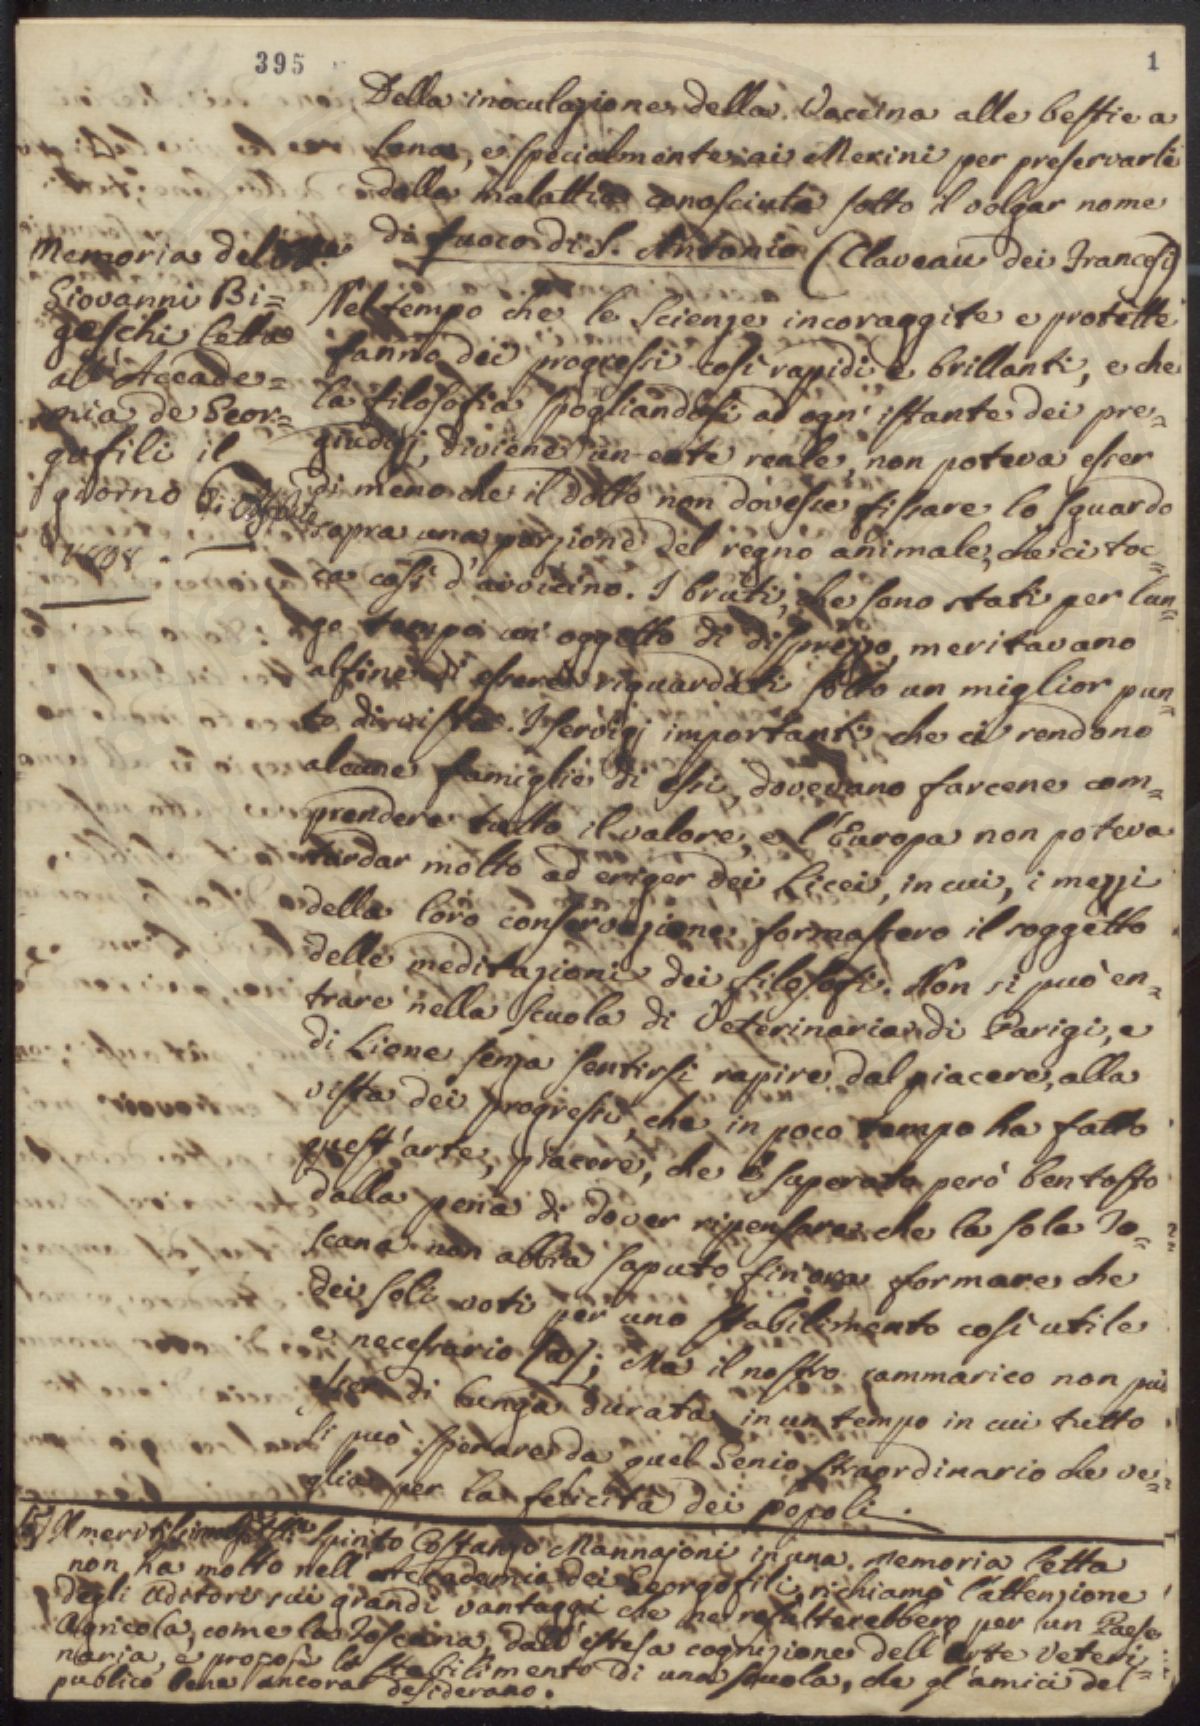 395
1
Della inoculazione della Vaccina alle bestie a
lana, e specialmente ai Merini per preservarle
dalla malattia conosciuta sotto il volgar nome
di fuoco di S. Antonio (Claveau dei Francesi)
Memoria del
Giovanni Bi=
geschi letta
all'Accade=
mia de Geor=
gofili il
giorno
1808.
Nel tempo che le Scienze incoraggite e protette
fanno dei progressi così rapidi e brillanti, e che
la filosofia spogliandosi ad ogn' istante dei pre=
giudizj, diviene un ente reale, non poteva esser
di meno che il dotto non dovesse fissare lo sguardo
sopra una porzione del regno animale, che ci toc=
ca così d'avvicino. I bruti, che sono stati per lun=
go tempo un' oggetto di disprezzo, meritavano
alfine di essere riguardati sotto un miglior pun=
to di vista. I servigj importanti che ci rendono
alcune famiglie di essi, dovevano farcene com=
prendere tutto il valore, e l'Europa non poteva
tardar molto ad eriger dei Licei, in cui, i mezzi
della loro conservazione formassero il soggetto
delle meditazioni dei filosofi. Non si può en=
trare nella Scuola di Veterinaria di Parigi, e
di Lione senza sentirsi rapire dal piacere, alla
vista dei progressi, che in poco tempo ha fatto
quest'arte, piacere, che è superato però bentosto
dalla pena di dover ripensare che la sola To=
scana non abbia saputo fin'ora formare che
dei soli voti per uno stabilimento così utile
e necessario (a); Ma il nostro rammarico non può
esser di lunga durata in un tempo in cui tutto
si può sperare da quel Genio straordinario che ve=
glia per la felicità dei popoli.
(a) Il Spirito Costanzo Mannajoni in una memoria letta
non ha molto nell'Accademia dei Georgofili, richiamò l'attenzione
degli Uditori sui grandi vantaggi che ne resulterebbero per un Paese
Agricola, come la Toscana, dall'estesa cognizione dell'Arte Veteri=
naria, e propose lo stabilimento di una scuola, che gl'amici del
publico bene ancora desiderano.